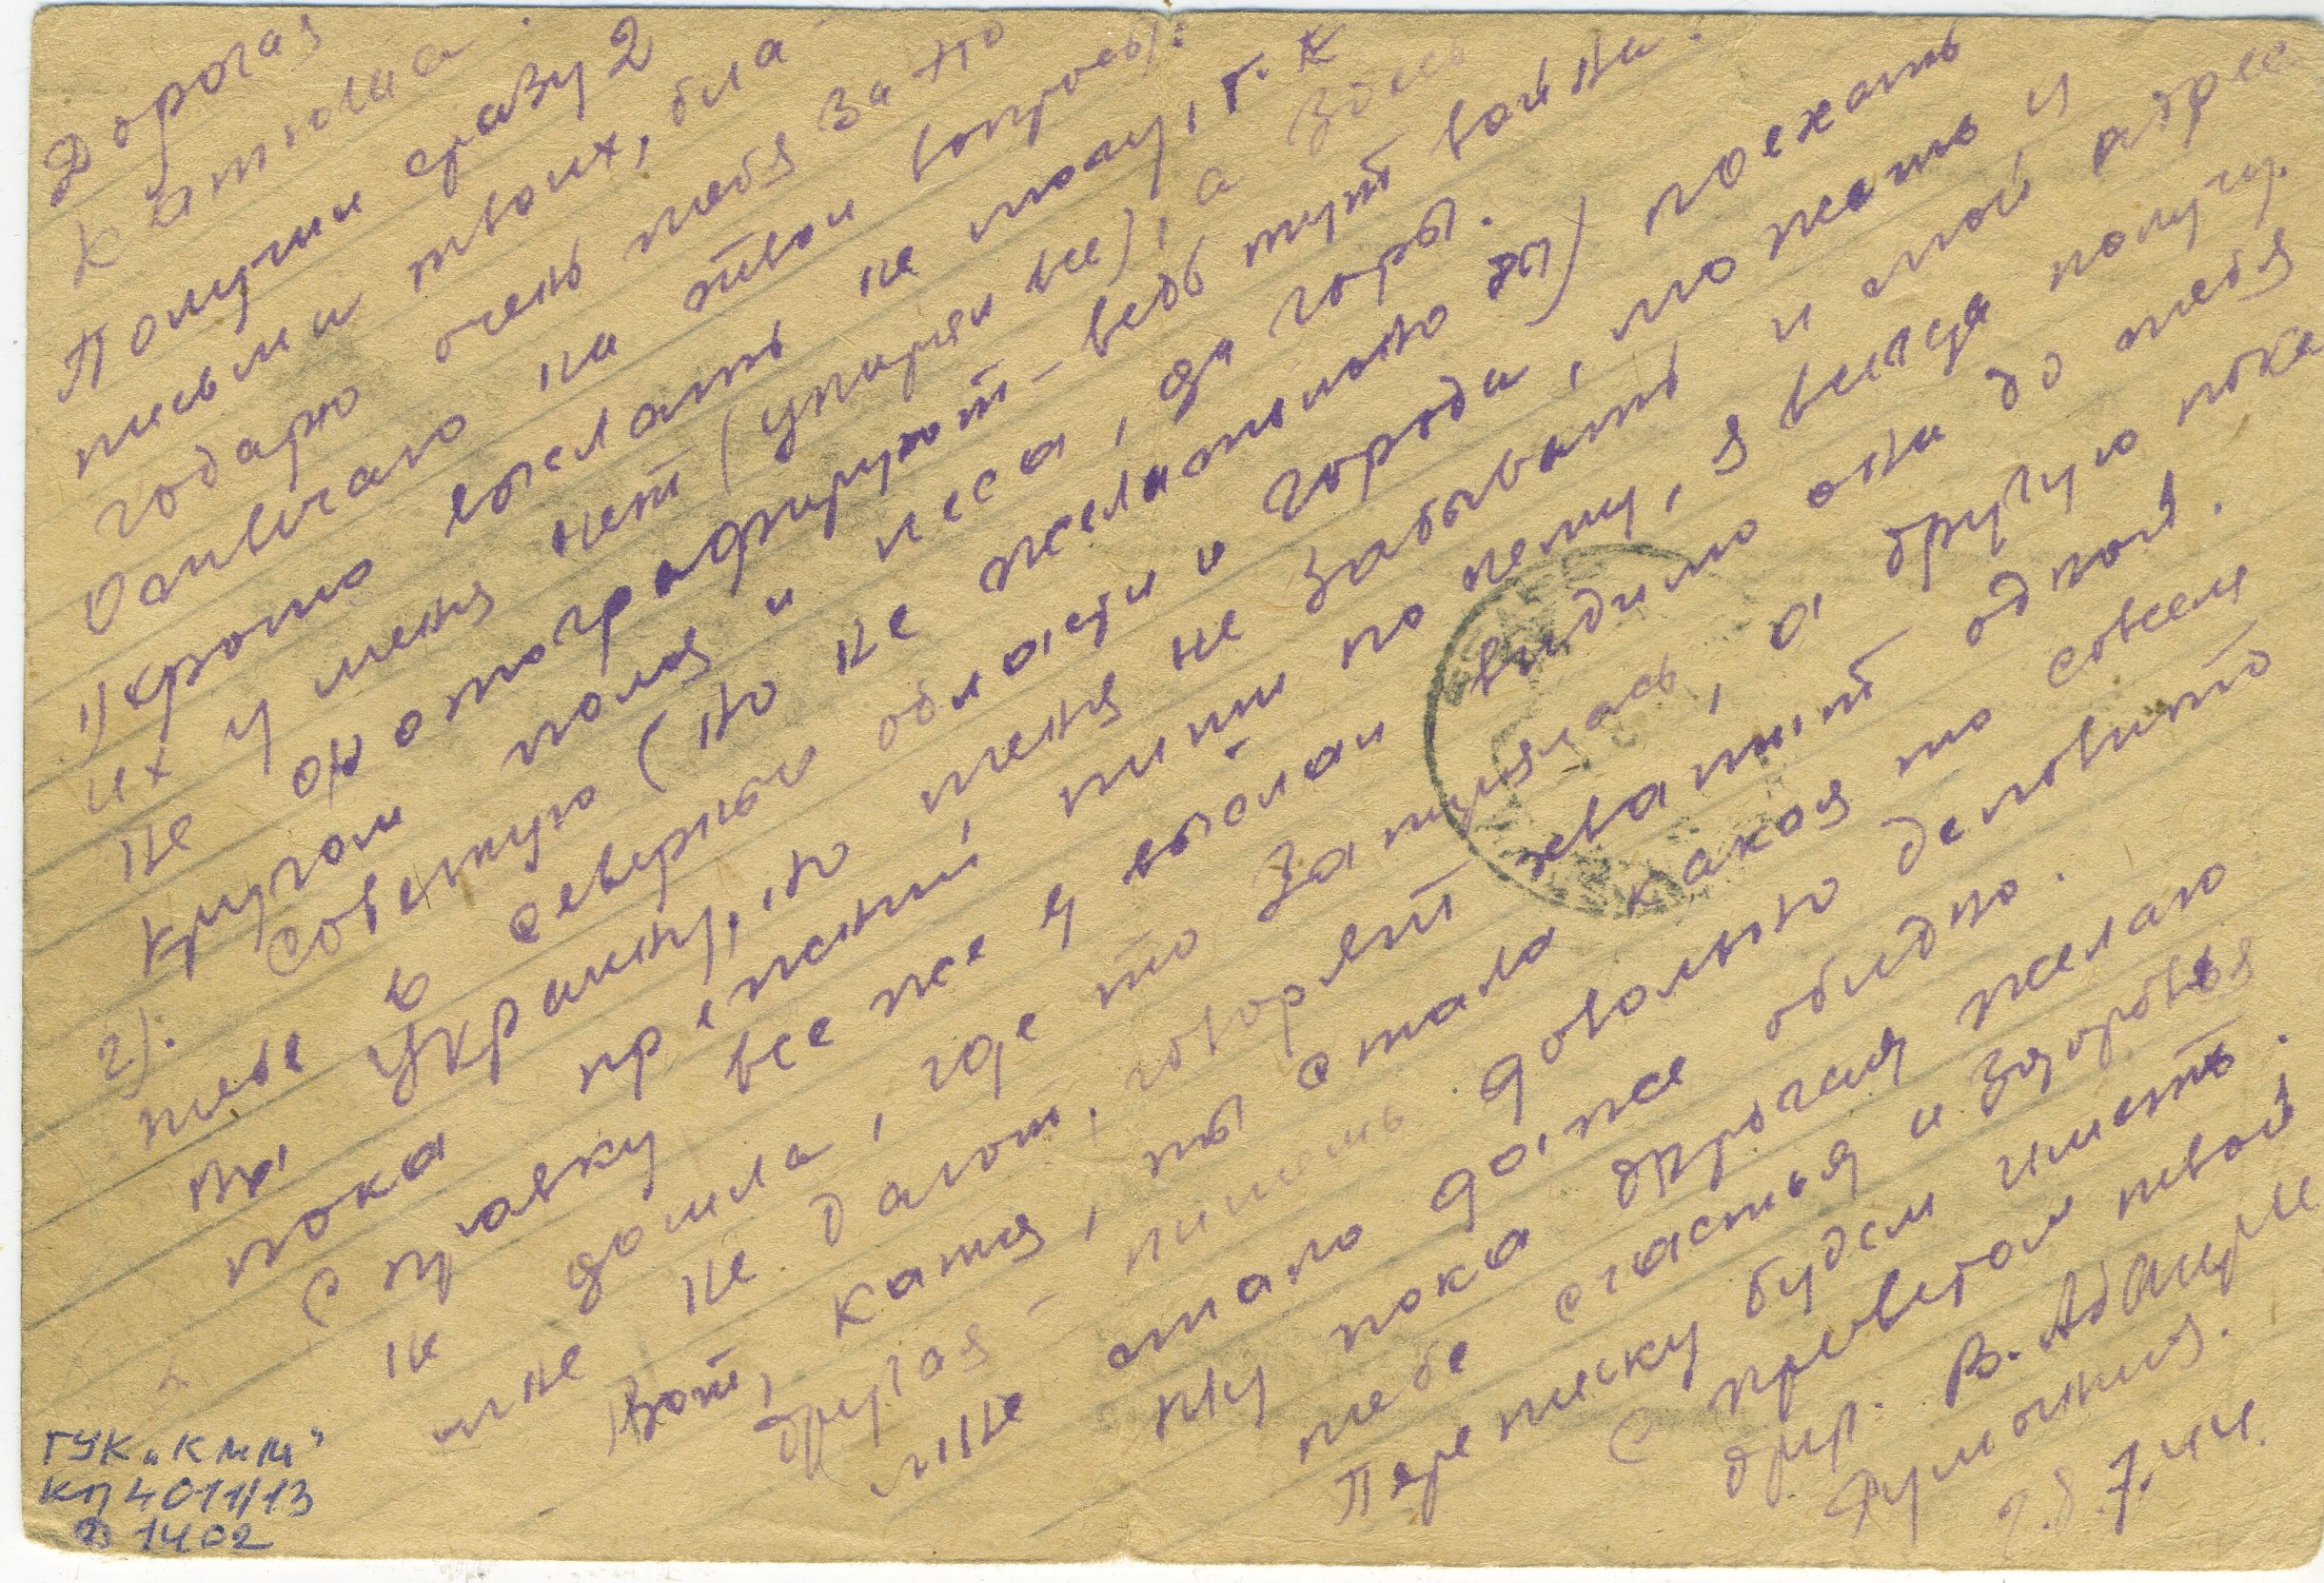 Дорогая
Катюша.
Получил сразу 2
письма твоих, бла
годарю очень тебя за то
Отвечаю на твои вопросы:
1) фото выслать не могу, т.к
их у меня нет (утерял все), а здесь
не фотографируют – ведь тут война:
Кругом поля и леса, да горы.
2). Советую (но не желательно) поехать
тебе в северные области и города, можешь и
на Украину, но меня не забывать и мой адрес
пока прежний, пиши по нему, я всегда получу.
Справку все же я выслал видимо она до тебя
не дошла, где то затерялась, а другую пока
мне не дают, говорят хватит одной.
Вот, Катя, ты стала какая то совсем
другая – пишешь довольно деловито
мне стало даже обидно.
Ну пока дорогая желаю
тебе счастья и здоровья
Переписку будем иметь.
С приветом твой
друг. В.
Румыния.
28.7.44.
ГУК „КММ"
КП 4011/13
Д 1402